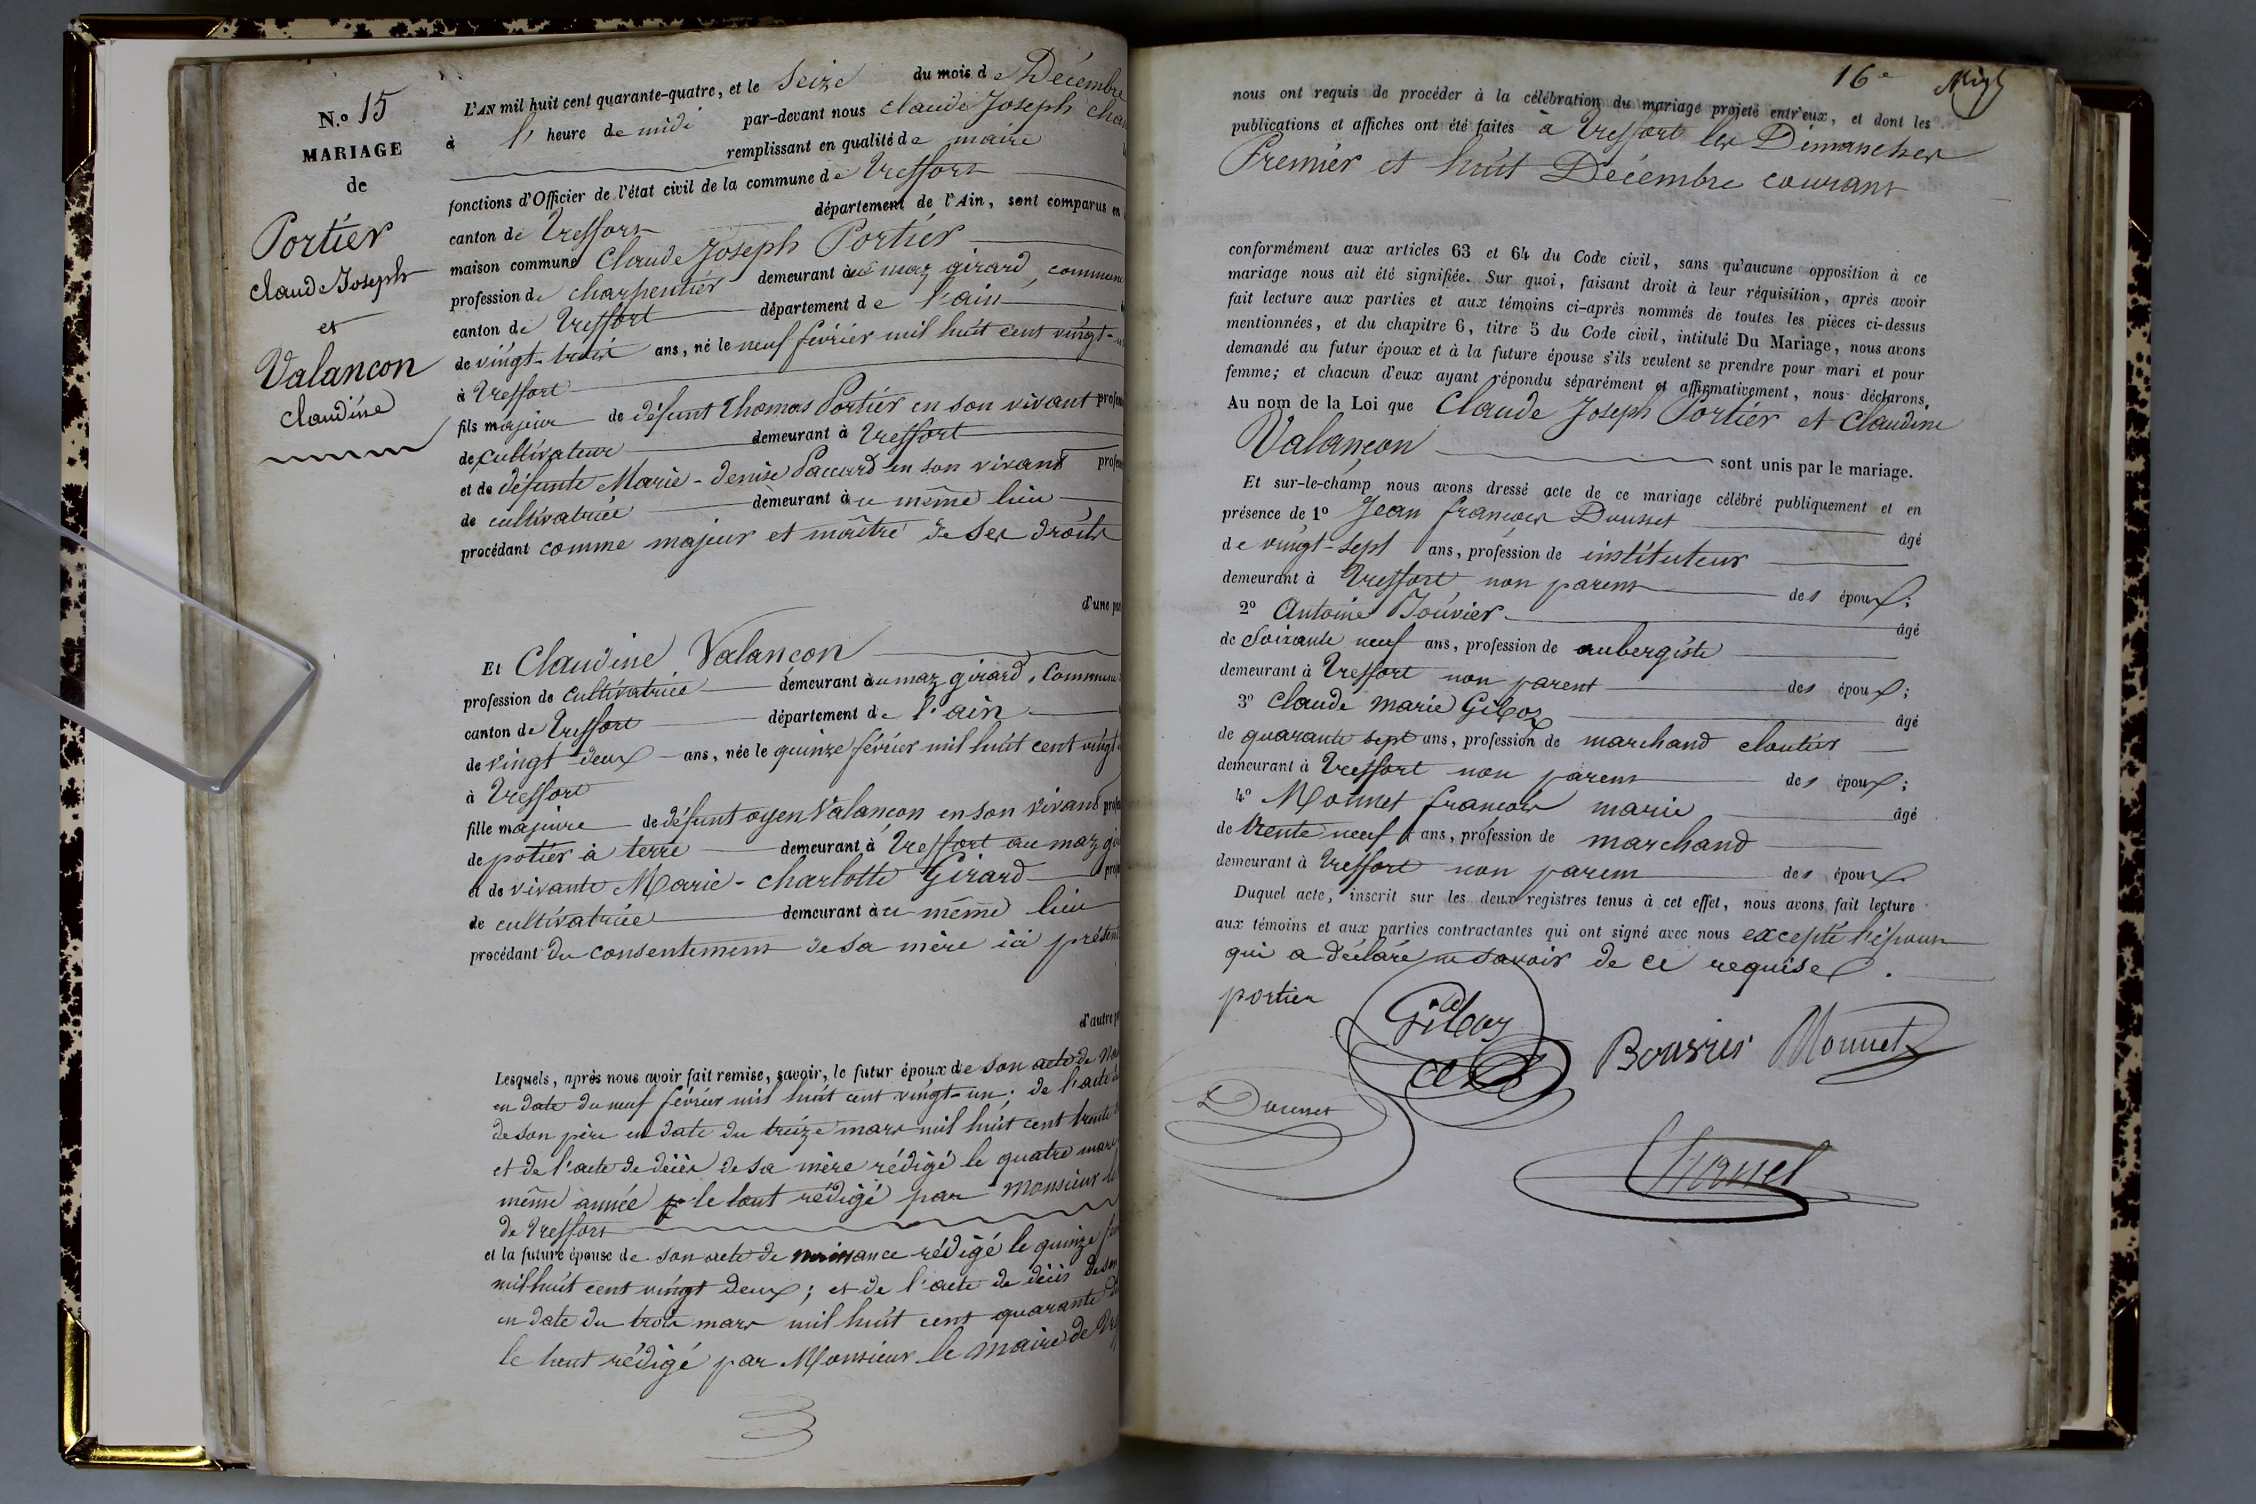 N.o 15
MARIAGE
de
Portier
Claude Joseph
et
Valancon
Claudine
L'AN mil huit cent quarante-quatre, et le seize du mois de Décembre
à l'heure de midi par-devant nous Claude Joseph
remplissant en qualité de maire
fonctions d'Officier de l'état civil de la commune de Treffort
canton de Treffort département de l'Ain, sont comparus en
maison commune Claude Joseph Portier
profession de charpentier demeurant au maz girard, commune
canton de Treffort département de l'ain
de vingt-trois ans, né le neuf février mil huit cent vingt-
à Treffort
fils majeur de défunt Thomas Portier en son vivant
de cultivateur demeurant à Treffort
et de défunte Marie-denise Paccard en son vivant
de cultivatrice demeurant au même lieu
procédant comme majeur et maître de ses droits
d'une
Et Claudine Valancon
profession de cultivatrice demeurant au maz girard, Commune
canton de Treffort département de l'ain
de vingt deux ans, née le quinze février mil huit cent vingt
à Treffort
fille majeure de défunt oyen Valançon en son vivant
de potier à terre demeurant à Treffort au maz
et de vivante Marie-Charlotte Girard
de cultivatrice demeurant au même lieu
procédant du consentement de sa mère ici
d'autre
Lesquels, après nous avoir fait remise, savoir, le futur époux de son acte de
en date du neuf février mil huit cent vingt-un; de l'acte
de son père en date du treize mars mil huit cent trente
et de l'acte de décès de sa mère rédigé le quatre mars
même année le tout rédigé par Monsieur
de Treffort
et la future épouse de son acte de naissance rédigé le quinze
mil huit cent vingt deux; et de l'acte de décès de son
en date du trois mars mil huit cent quarante
le tout rédigé par Monsieur le Maire de
16e
nous ont requis de procéder à la célébration du mariage projeté entr'eux, et dont les
publications et affiches ont été faites à Treffort les Dimanches
Premier et huit Décembre courant
conformément aux articles 63 et 64 du Code civil, sans qu'aucune opposition à ce
mariage nous ait été signifiée. Sur quoi, faisant droit à leur réquisition, après avoir
fait lecture aux parties et aux témoins ci-après nommés de toutes les pièces ci-dessus
mentionnées, et du chapitre 6, titre 5 du Code civil, intitulé Du Mariage, nous avons
demandé au futur époux et à la future épouse s'ils veulent se prendre pour mari et pour
femme; et chacun d'eux ayant répondu séparément et affirmativement, nous déclarons,
Au nom de la Loi que Claude Joseph Portier et Claudine
Valançon sont unis par le mariage.
Et sur-le-champ nous avons dressé acte de ce mariage célébré publiquement et en
présence de 1o Jean françois Dousset âgé
de vingt-sept ans, profession de instituteur
demeurant à Treffort non parent des époux;
2o Antoine Bouvier âgé
de soixante neuf ans, profession de aubergiste
demeurant à Treffort non parent des époux;
3o Claude Marie Giboz âgé
de quarante sept ans, profession de marchand cloutier
demeurant à Treffort non parent des époux;
4o Monnet françois marie âgé
de trente neuf ans, profession de marchand
demeurant à Treffort non parent des époux.
Duquel acte, inscrit sur les deux registres tenus à cet effet, nous avons fait lecture
aux témoins et aux parties contractantes qui ont signé avec nous excepté l'épouse
qui a déclaré ne savoir de ce requise.
portier
Giboz
Bouvier Monnet